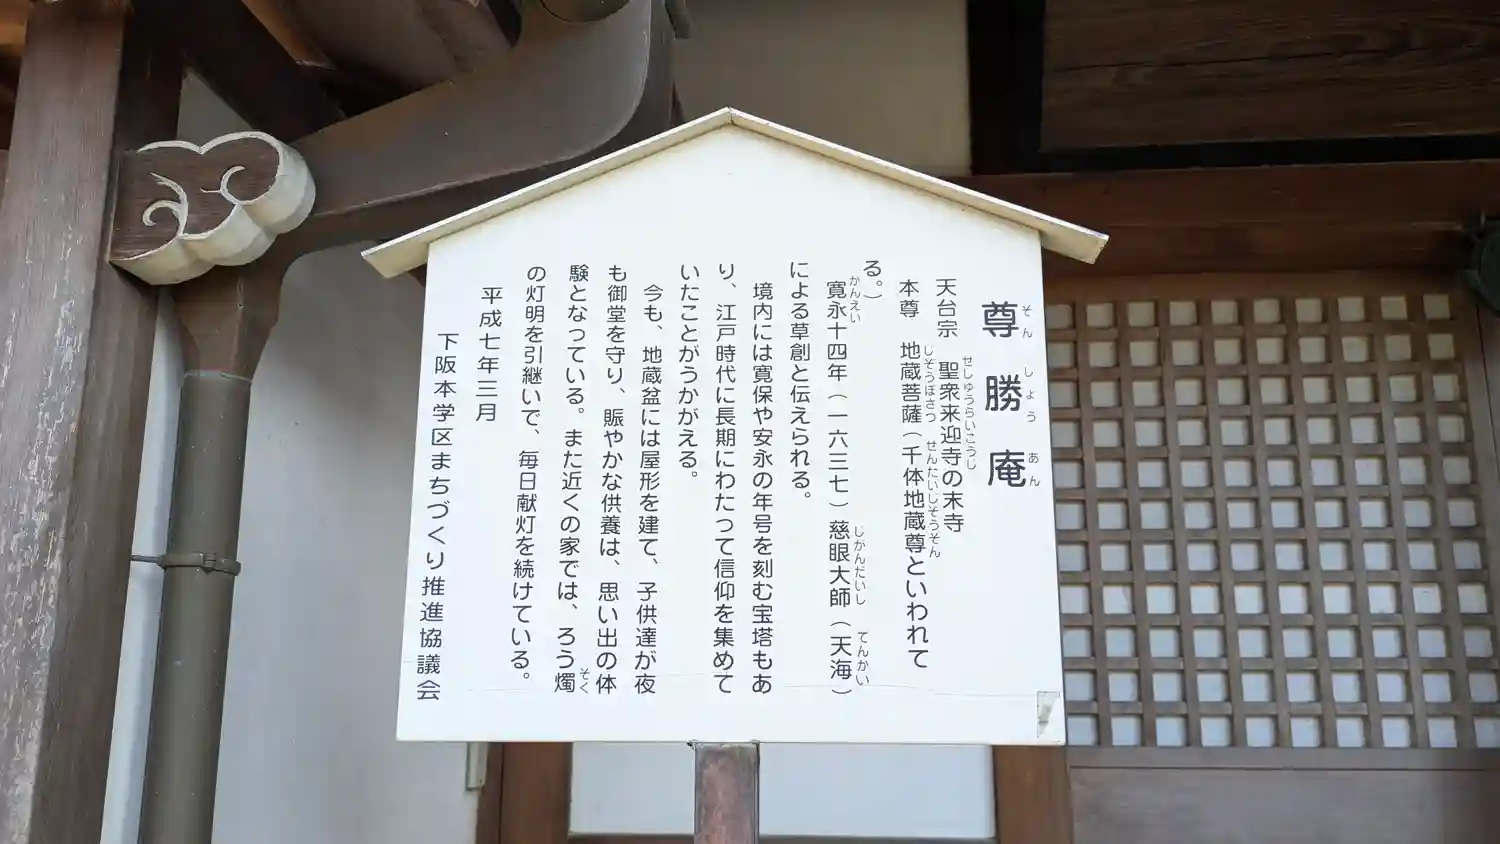 尊勝庵
そんしょうあん
天台宗 聖衆来迎寺の末寺
せしゅうらいこうじ
本尊 地蔵菩薩(千体地蔵尊といわれて
じぞうぼさつ せんたいじぞうそん
る。)
寛永十四年(一六三七)慈眼大師(天海)
かんえい じがんだいし てんかい
による草創と伝えられる。
境内には寛保や安永の年号を刻む宝塔もあ
り、江戸時代に長期にわたって信仰を集めて
いたことがうかがえる。
今も、地蔵盆には屋形を建て、子供達が夜
も御堂を守り、賑やかな供養は、思い出の体
験となっている。また近くの家では、ろう燭
そく
の灯明を引継いで、毎日献灯を続けている。
平成七年三月
下阪本学区まちづくり推進協議会